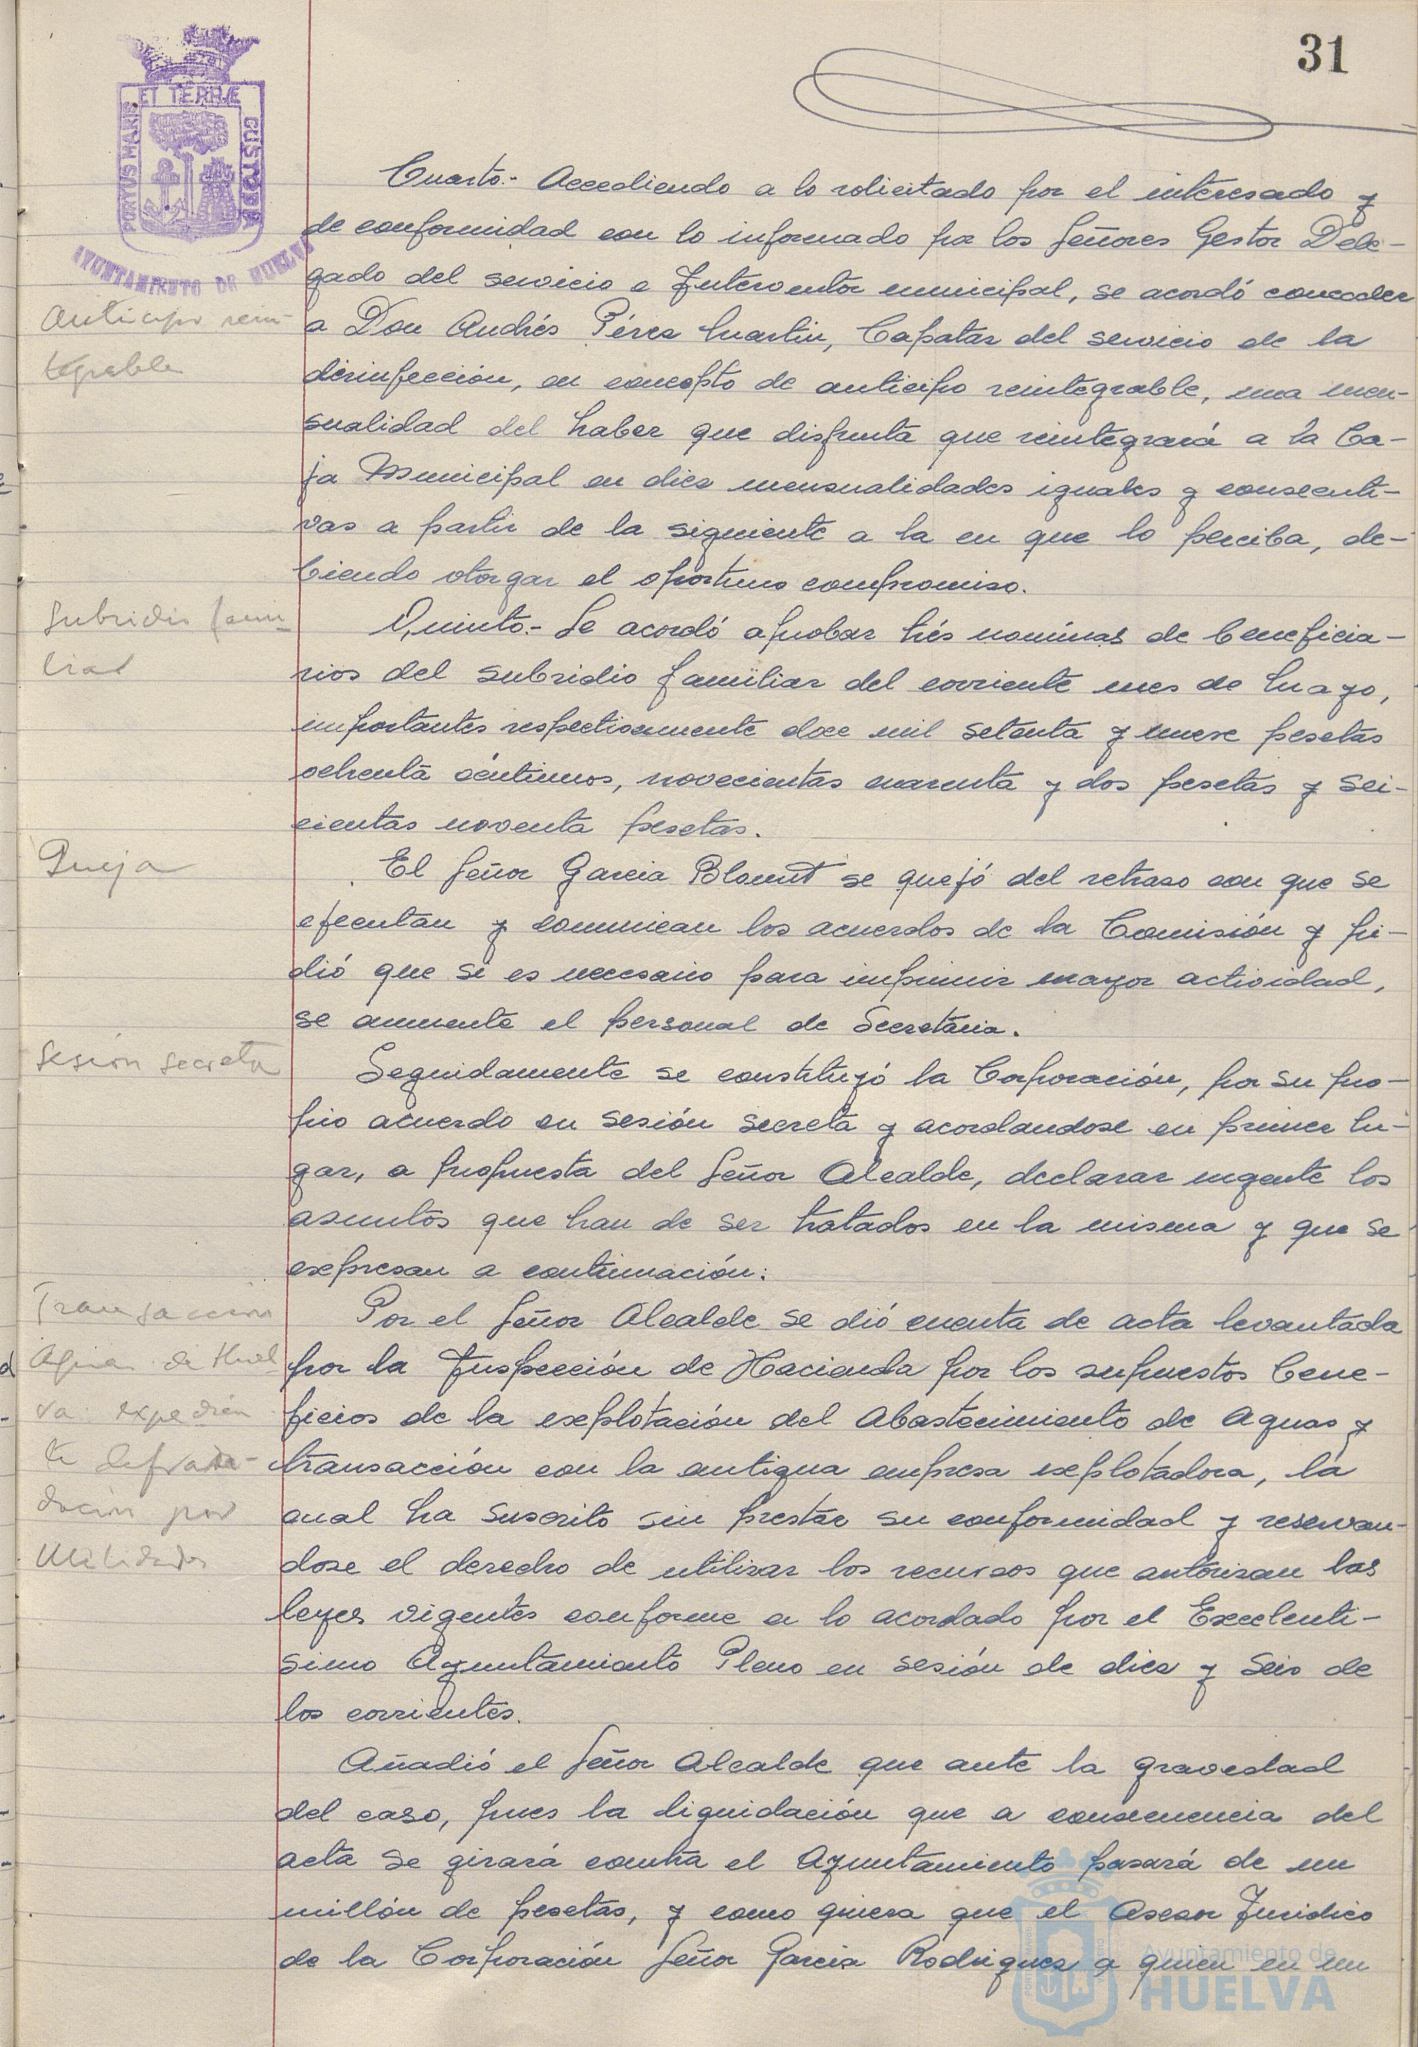 31
PORTUS MARIS ET TERRAE CUSTODIA
AYUNTAMIENTO DE HUELVA
Cuarto.- Accediendo a lo solicitado por el interesado y
de conformidad con lo informado por los Señores Gestor Dele-
gado del servicio e Interventor municipal, se acordó conceder
Anticipo rein-
tegrable
a Don Andrés Pérez Martin, Capataz del servicio de la
desinfección, en concepto de anticipo reintegrable, una men-
sualidad del haber que disfruta que reintegrará a la Ca-
ja Municipal en diez mensualidades iguales y consecuti-
vas a partir de la siguiente a la en que lo perciba, de-
biendo otorgar el oportuno compromiso.
Subsidio fami-
liar
Quinto.- Se acordó aprobar trés nominas de beneficia-
rios del subsidio familiar del corriente mes de Mayo,
importantes respectivamente doce mil setenta y nueve pesetas
ochenta céntimos, novecientas cuarenta y dos pesetas y sei-
cientas noventa pesetas.
Queja
El Señor Garcia Blount se quejó del retraso con que se
ejecutan y comunican los acuerdos de la Comisión y pi-
dió que si es necesario para imprimir mayor actividad,
se aumente el personal de Secretaria.
Sesión secreta
Seguidamente se constituyó la Corporación, por su pro-
pio acuerdo en sesión secreta y acordandose en primer lu-
gar, a propuesta del Señor Alcalde, declarar urgente los
asuntos que han de ser tratados en la misma y que se
expresan a continuación:
Transaccion
Aguas de Huel
va: expedien
te defrau-
dación por
Utilidades
Por el Señor Alcalde se dió cuenta de acta levantada
por la Inspección de Hacienda por los supuestos bene-
ficios de la explotación del Abastecimiento de Aguas y
transacción con la antigua empresa explotadora, la
cual ha suscrito sin prestar su conformidad y reservan-
dose el derecho de utilizar los recursos que autorizan las
leyes vigentes conforme a lo acordado por el Excelenti-
simo Ayuntamiento Pleno en sesión de diez y seis de
los corrientes.
Añadió el Señor Alcalde que ante la gravedad
del caso, pues la liquidación que a consecuencia del
acta se girará contra el Ayuntamiento pasará de un
millón de pesetas, y como quiera que el Asesor Juridico
de la Corporación Señor Garcia Rodriguez a quien en un
Ayuntamiento de
HUELVA